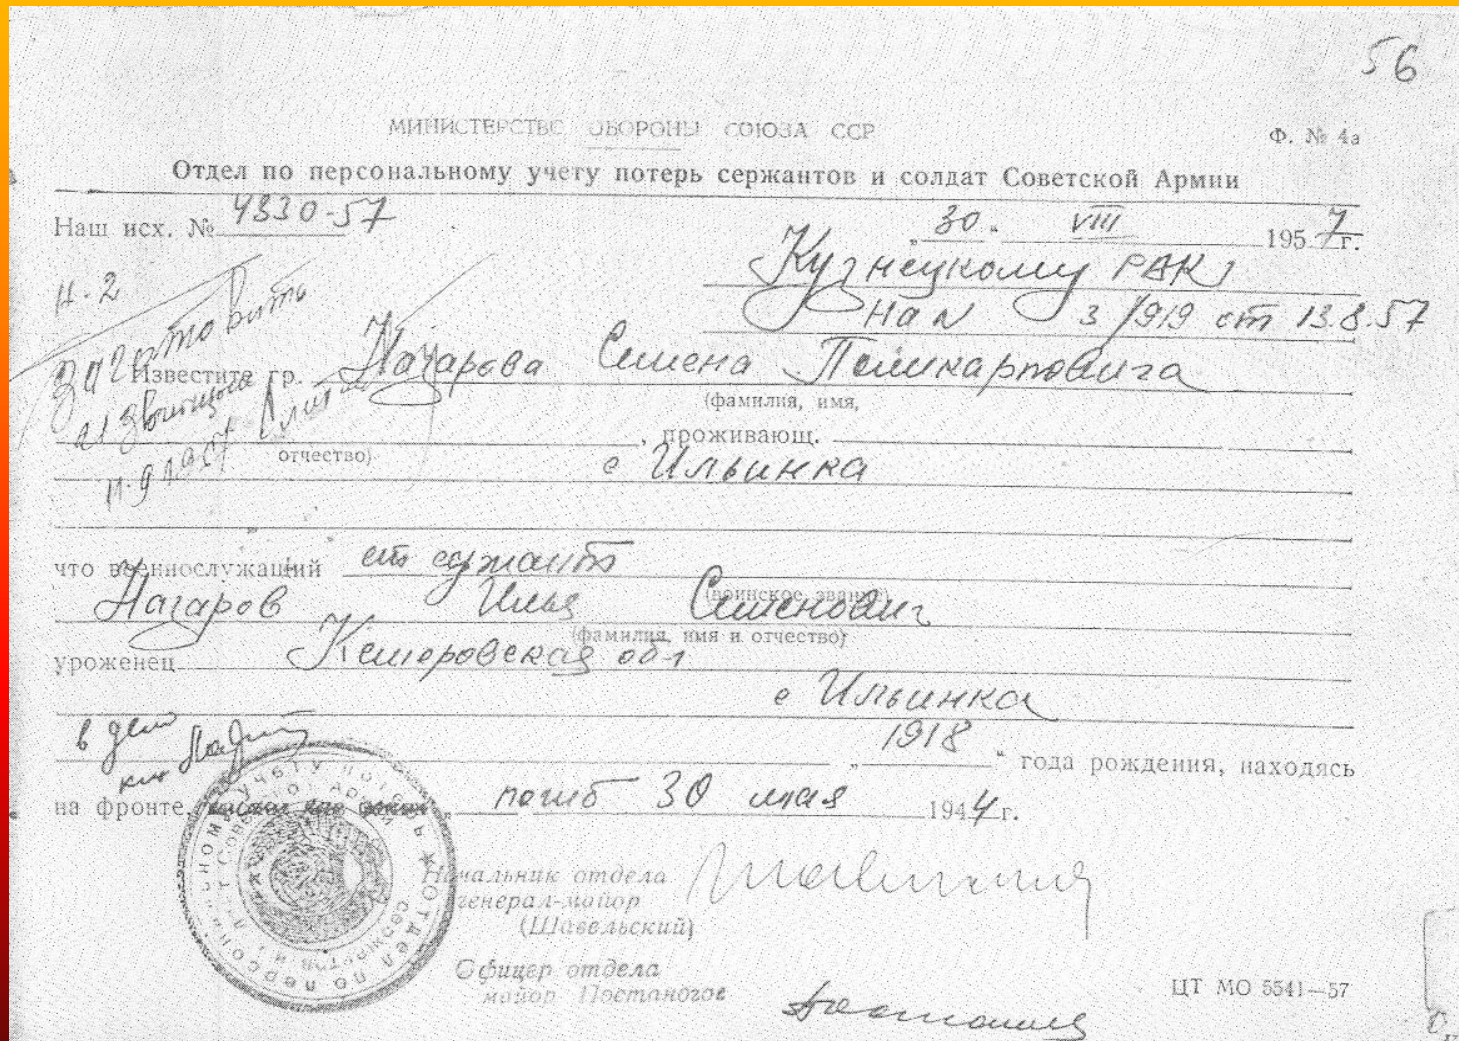 56
МИНИСТЕРСТВО ОБОРОНЫ СОЮЗА ССР
Ф. № 4а
Отдел по персональному учету потерь сержантов и солдат Советской Армии
Наш исх. № 4330-57
„30“ VIII 1957 г.
Кузнецкому РВК
на N 3/919 от 13.8.57
н-2
Заготовить
Известите гр. Назарова Семена Поликарповича
(фамилия, имя,
, проживающ.
отчество)
с Ильинка
что военнослужащий ст сержант
(воинское звание)
Назаров Илья Семенович
(фамилия, имя и отчество)
уроженец Кемеровская обл
с Ильинка
в дело
„1918“ года рождения, находясь
на фронте, погиб 30 мая 1944 г.
Начальник отдела
генерал-майор
(Шавельский)
Офицер отдела
майор Постаногов
ЦТ МО 5541—57